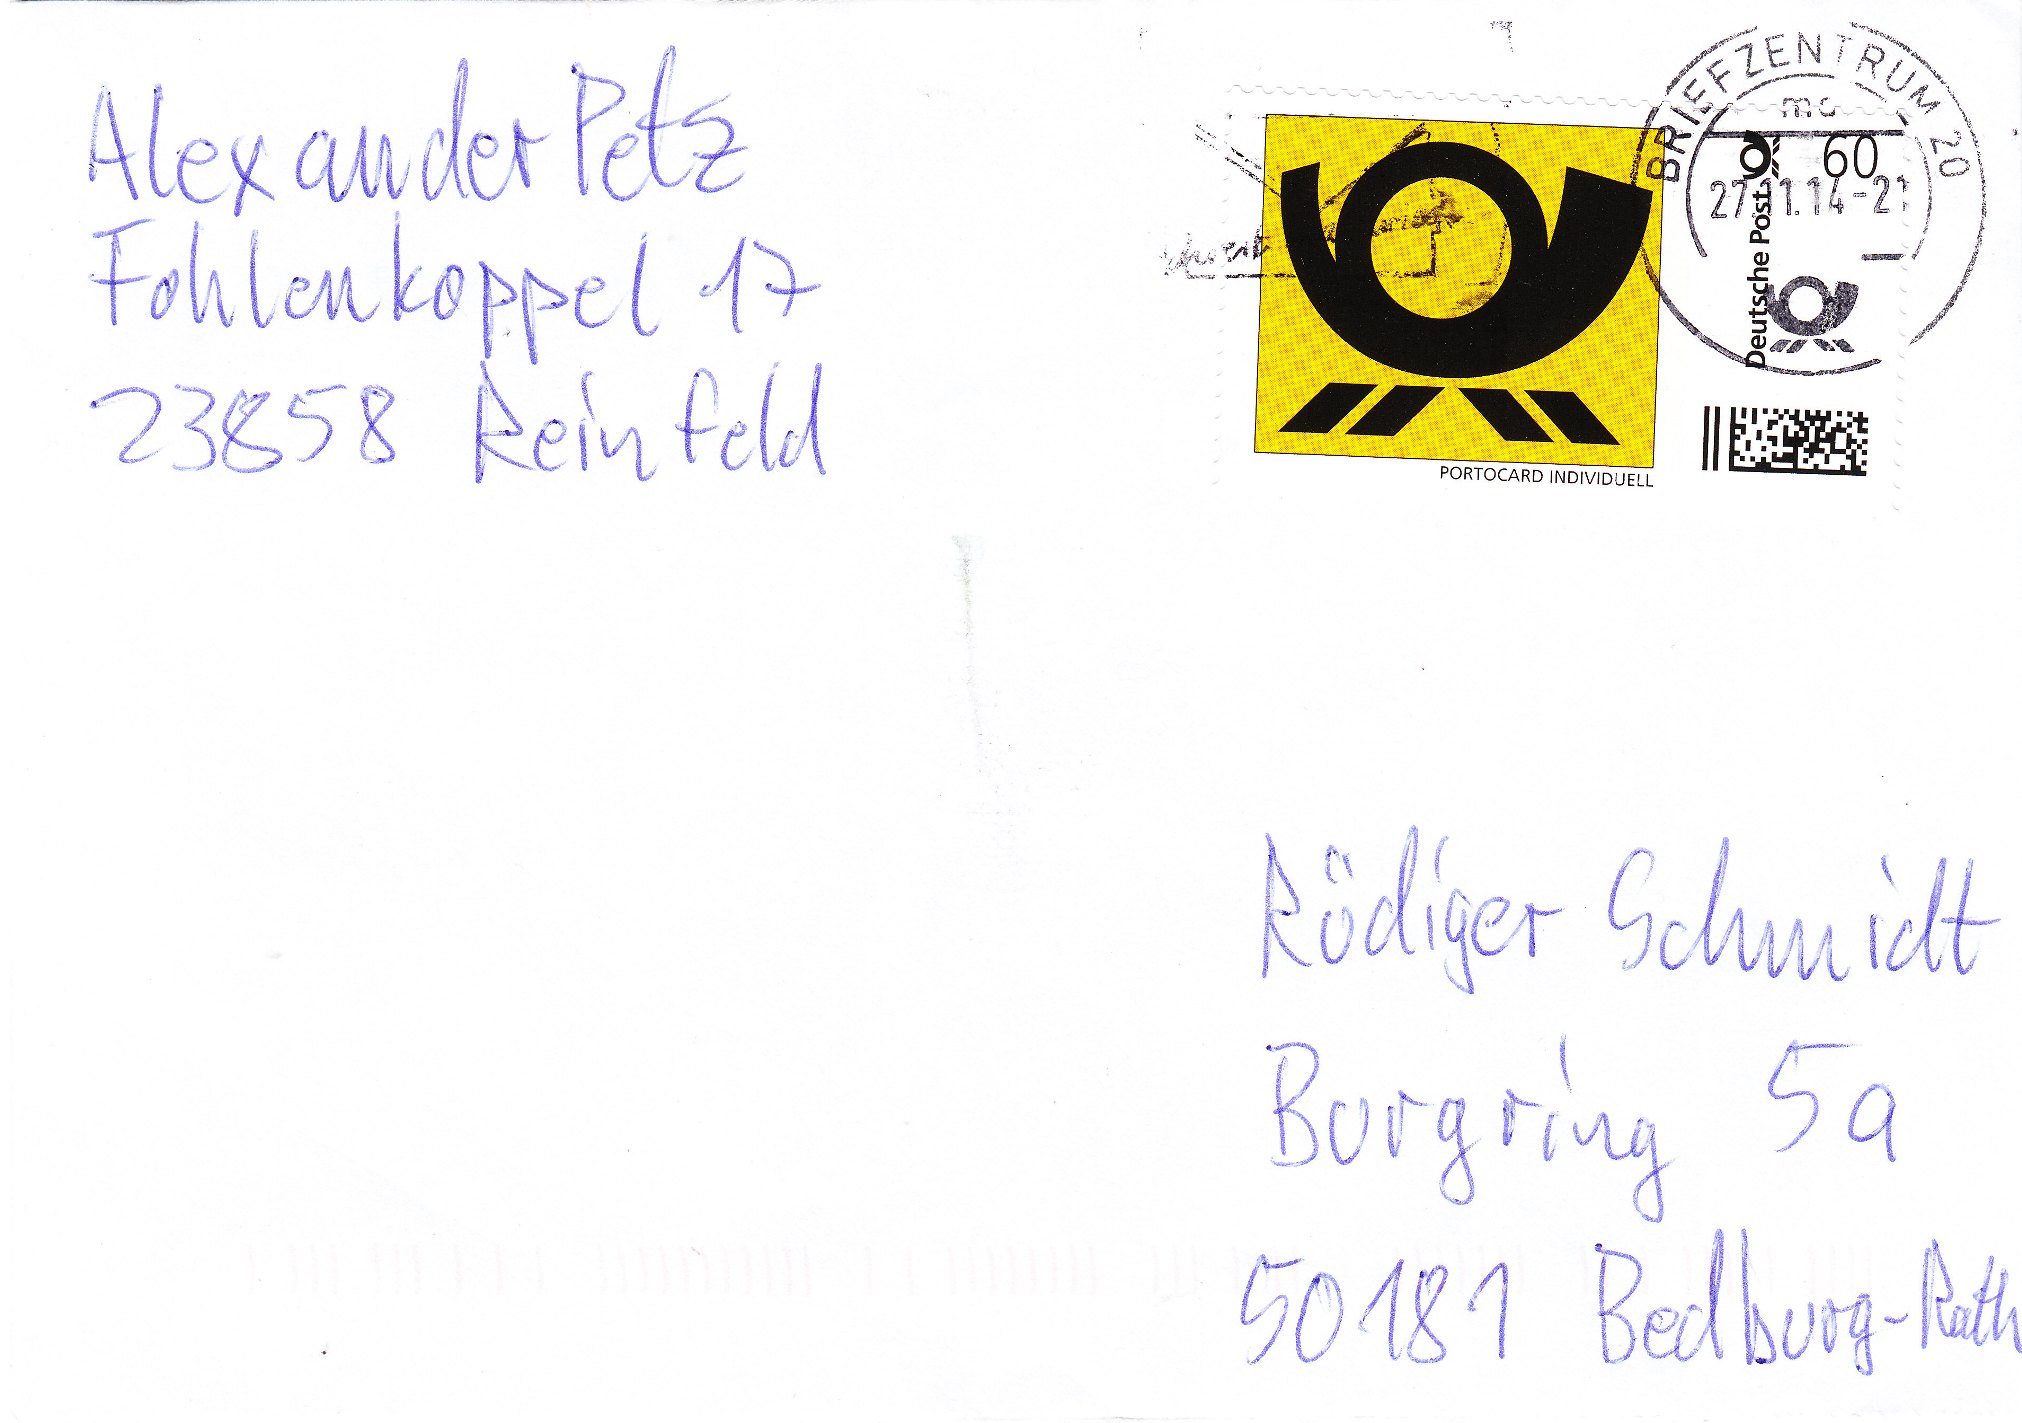 Alexander Petz
Fohlenkoppel 17
23858 Reinfeld
BRIEFZENTRUM 20
mc
60
27.11.14-21
Deutsche Post
PORTOCARD INDIVIDUELL
Rödiger Schmidt
Burgring 5a
50181 Bedburg-Rath